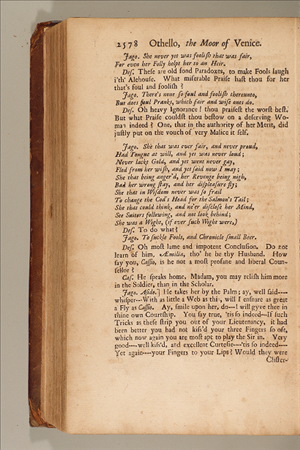 2578 Othello, the Moor of Venice.
Jago. She never yet was foolish that was fair,
For even her Folly helpt her to an Heir.
Des. These are old fond Paradoxes, to make Fools laugh
i'th' Alehouse. What miserable Praise hast thou for her
that's foul and foolish?
Jago. There's none so foul and foolish thereunto,
But does foul Pranks, which fair and wise ones do.
Des. Oh heavy Ignorance! thou praisest the worst best.
But what Praise couldst thou bestow on a deserving Wo-
man indeed? One, that in the authority of her Merit, did
justly put on the vouch of very Malice it self.
Jago. She that was ever fair, and never proud,
Had Tongue at will, and yet was never loud;
Never lackt Gold, and yet went never gay,
Fled from her wish, and yet said now I may;
She that being anger'd, her Revenge being nigh,
Bad her wrong stay, and her displeasure fly;
She that in Wisdom never was so frail
To change the Cod's Head for the Salmon's Tail;
She that could think, and ne'er disclose her Mind,
See Suitors following, and not look behind;
She was a Wight, (if ever such Wight were,)
Des. To do what?
Jago. To suckle Fools, and Chronicle small Beer.
Des. Oh most lame and impotent Conclusion. Do not
learn of him, Æmilia, tho' he be thy Husband. How
say you, Cassio, is he not a most profane and liberal Coun-
sellor?
Cas. He speaks home, Madam, you may relish him more
in the Soldier, than in the Scholar.
Jago. Aside.] He takes her by the Palm; ay, well said----
whisper--With as little a Web as this, will I ensnare as great
a Fly as Cassio. Ay, smile upon her, do---I will gyve thee in
thine own Courtship. You say true, 'tis so indeed--If such
Tricks as these strip you out of your Lieutenancy, it had
been better you had not kiss'd your three Fingers so oft,
which now again you are most apt to play the Sir in. Very
good---well kiss'd, and excellent Curtesie---'tis so indeed----
Yet again---your Fingers to your Lips? Would they were
Clister-